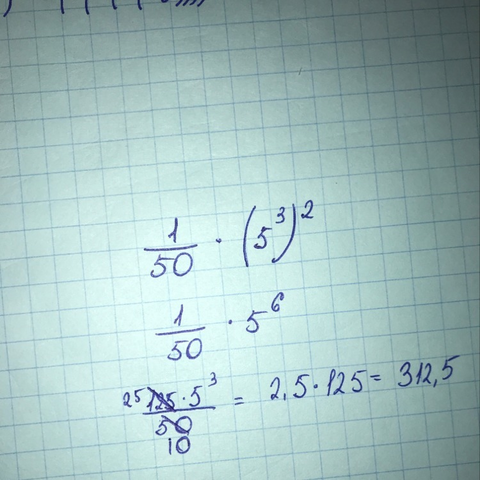 1/50 · (5³)²
1/50 · 5⁶
25 125 · 5³ / 50 10 = 2,5 · 125 = 312,5